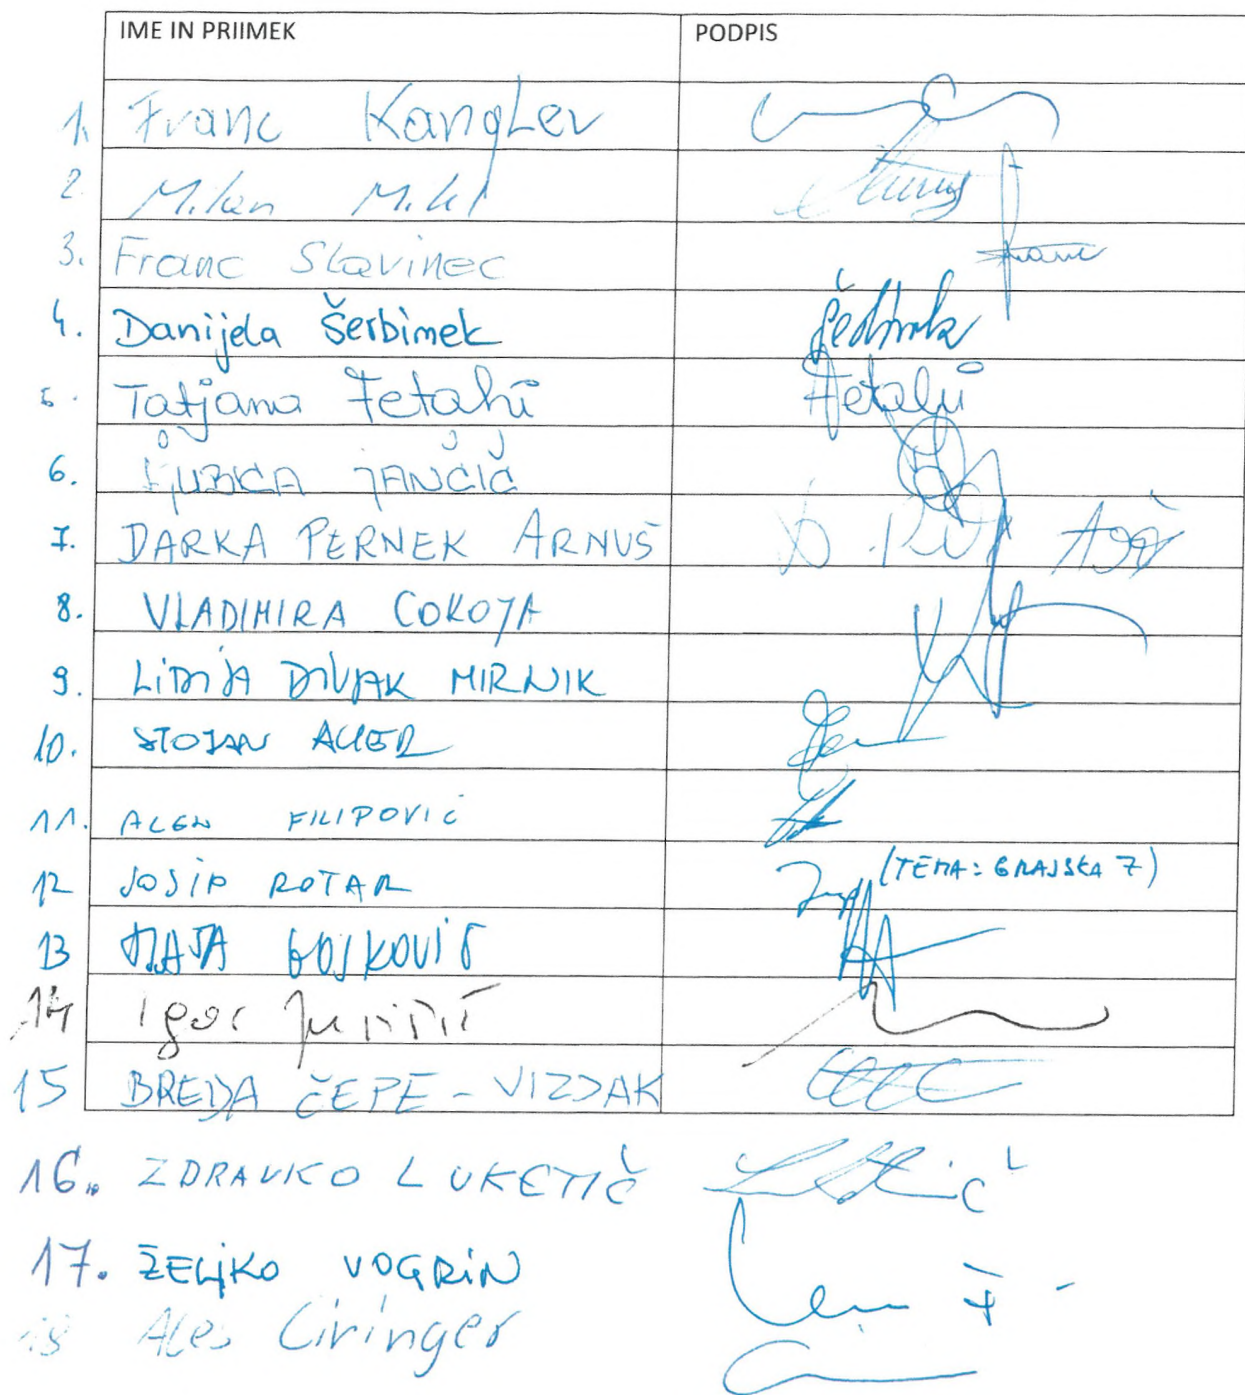 IME IN PRIIMEK PODPIS
1. Franc Kangler
2. Milan Mikl
3. Franc Slavinec Franc
4. Danijela Šerbinek
5. Tatjana Fetahi Fetahi
6. LJUBICA JANČIČ
7. DARKA PERNEK ARNUŠ
8. VLADIMIRA COKOJA
9. LIDIJA DIVJAK MIRNIK
10. STOJAN AUER
11. ALEN FILIPOVIĆ
12 JOSIP ROTAR (TEMA: GRAJSKA 7)
13 GOJKOVIČ
14 Igor Jurišič
15 BREDA ČEPE - VIZJAK
16. ZDRAVKO LUKETIČ
17. ŽELJKO VOGRIN
18 Ales Ciringer